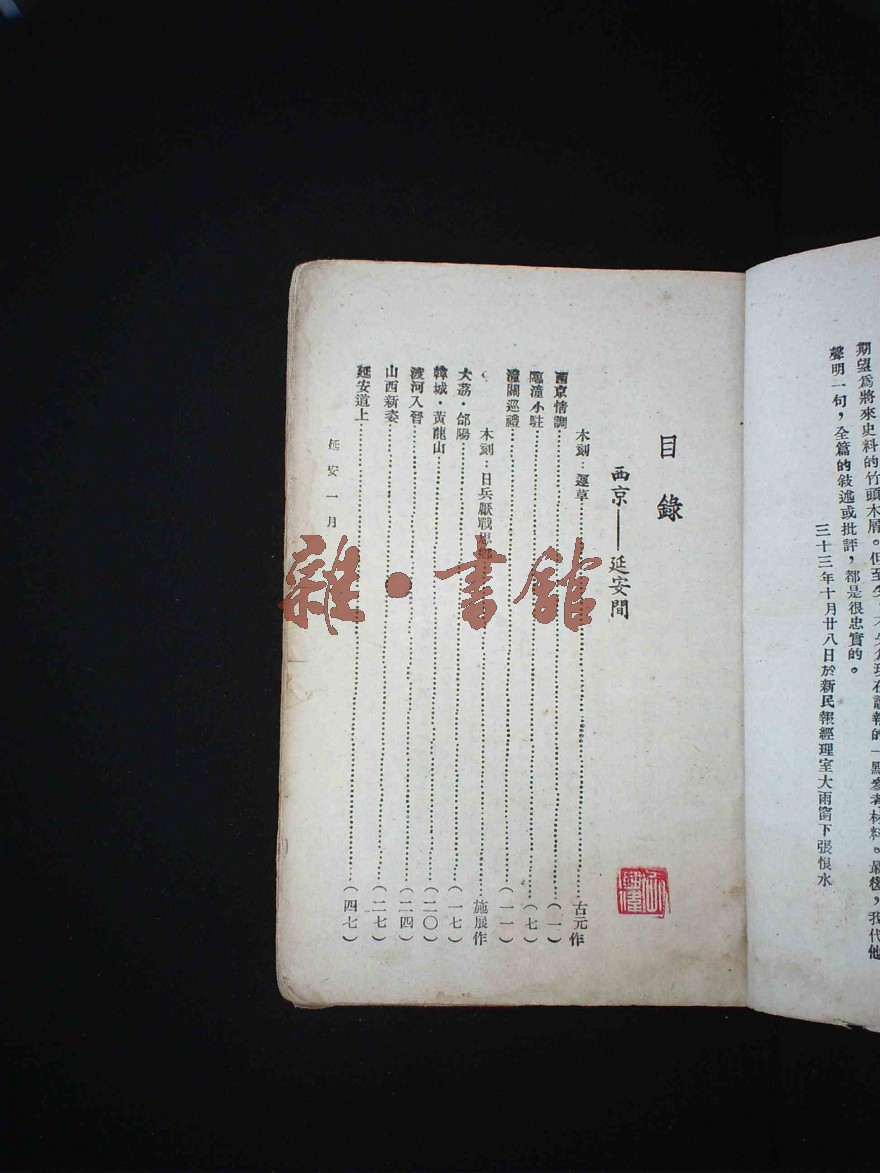 期望為將來史料的竹頭木屑。但至
現在讀報的一點參考材料。最後，我代他
聲明一句，全篇的敘述或批評，都是很忠實的。
三十三年十月廿八日於新民報經理室大雨窗下張恨水
目錄
西京——延安間
木刻：運草……古元作
西京情調……（一）
臨潼小駐……（七）
潼關巡禮……（一一）
木刻：日兵厭戰思鄉……施展作
大荔·郃陽……（一七）
韓城·黃龍山……（二〇）
渡河入晉……（二四）
山西新姿……（二七）
延安道上……（四七）
延安一月
雜·書館